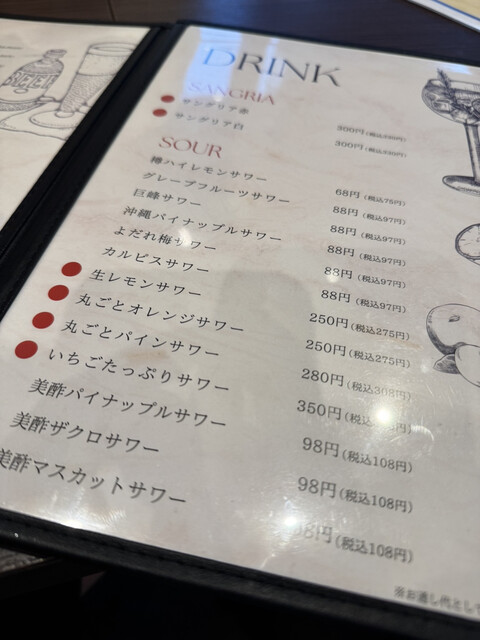 DRINK
SANGRIA
サングリア赤 300円(税込330円)
サングリア白 300円(税込330円)
SOUR
樽ハイレモンサワー 68円(税込75円)
グレープフルーツサワー 88円(税込97円)
巨峰サワー 88円(税込97円)
沖縄パイナップルサワー 88円(税込97円)
よだれ梅サワー 88円(税込97円)
カルピスサワー 88円(税込97円)
生レモンサワー 250円(税込275円)
丸ごとオレンジサワー 250円(税込275円)
丸ごとパインサワー 280円(税込308円)
いちごたっぷりサワー 350円(税込
美酢パイナップルサワー 98円(税込108円)
美酢ザクロサワー 98円(税込108円)
美酢マスカットサワー 98円(税込108円)
※お通し代として